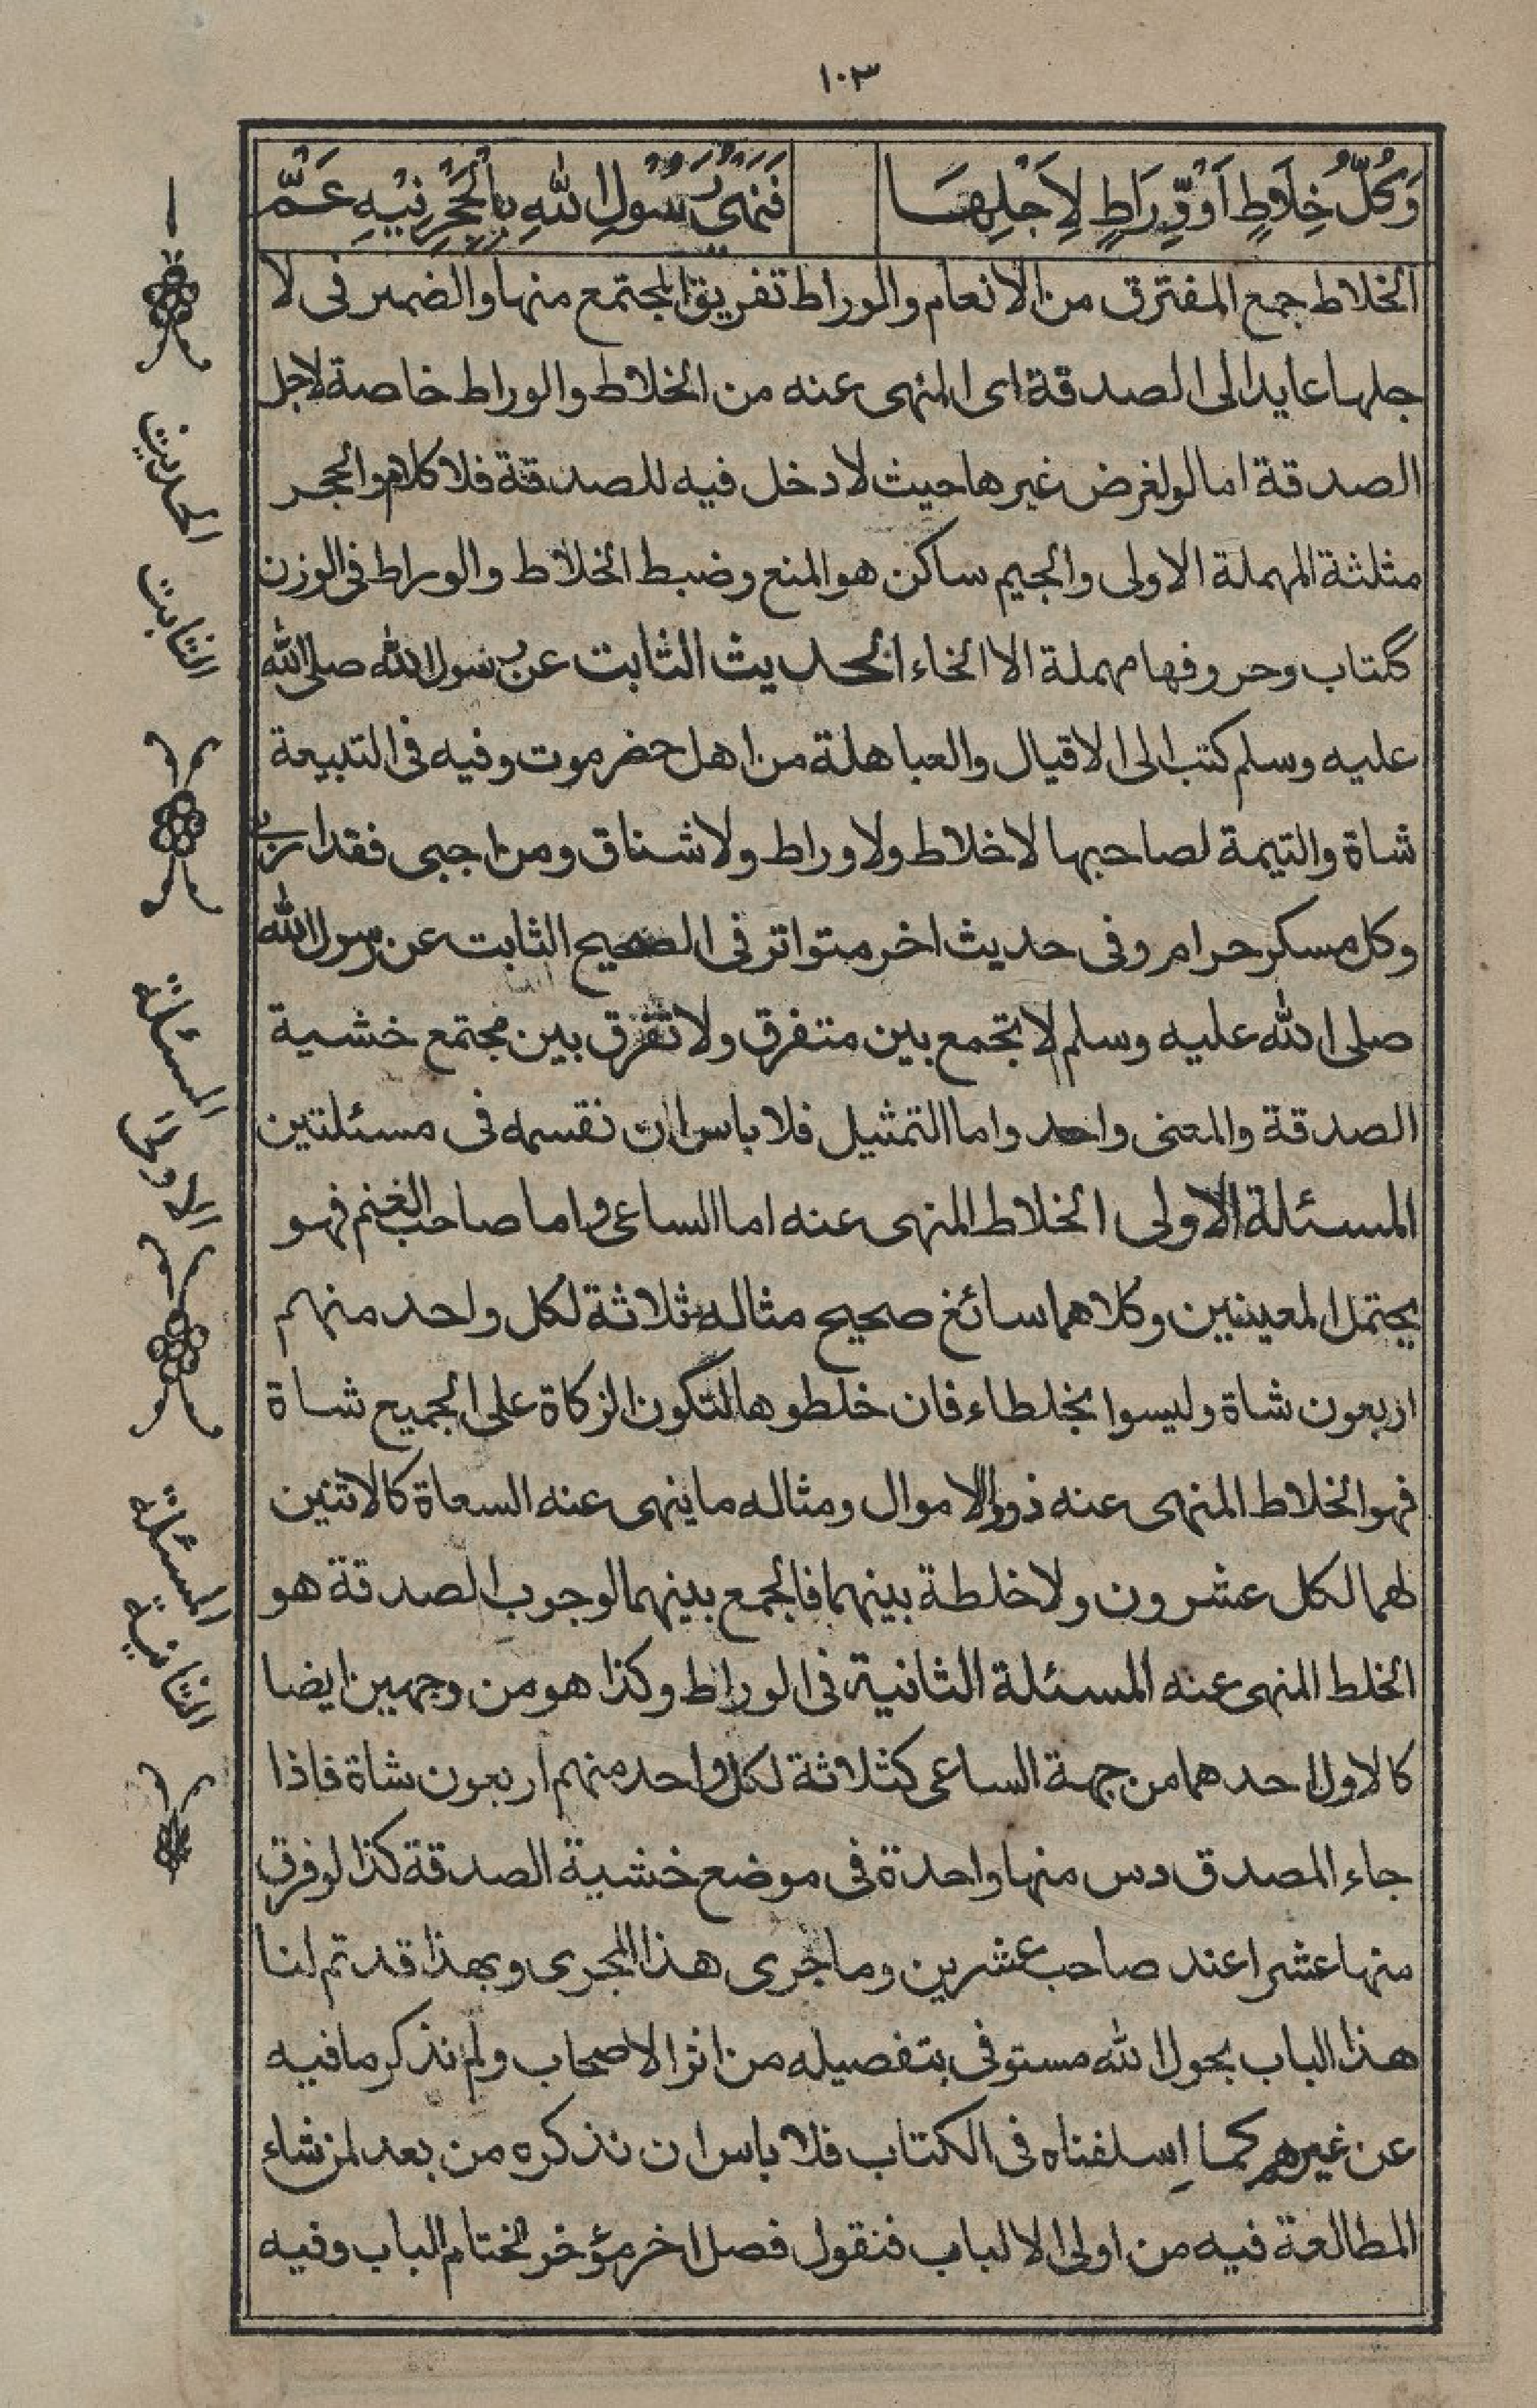 ١٠٣
وَكُلُّ خِلَاطٍ اَوْ وِرَاطٍ لِاَجْلِهَا
فَنَهْىُ رَسُوْلِ اللهِ بِالْحَجْرِ فِيْهِ عَمّْ
الخلاط جمع المفترق من الانعام والوراط تفريق المجتمع منها والضمير فى لا
جلها عايد الى الصدقة اى المنهى عنه من الخلاط والوراط خاصة لاجل
الصدقة اما لو لغرض غيرها حيث لا دخل فيه للصدقة فلا كلام والحجر
مثلثة المهملة الاولى والجيم ساكن هو المنع وضبط الخلاط والوراط فى الوزن
ككتاب وحروفها مهملة الا الخاء الحديث الثابت عن رسول الله صلى الله
عليه وسلم كتب الى الاقيال والعباهلة من اهل حضرموت وفيه فى التبيعة
شاة والتيمة لصاحبها لا خلاط ولا وراط ولا شناق ومن اجبى فقد اربى
وكل مسكر حرام وفى حديث اخر متواتر فى الصحيح الثابت عن رسول الله
صلى الله عليه وسلم لا تجمع بين متفرق ولا تفرق بين مجتمع خشية
الصدقة والمعنى واحد واما التمثيل فلا باس ان نقسمه فى مسئلتين
المسئلة الاولى الخلاط المنهى عنه اما الساعى واما صاحب الغنم فهو
يحتمل المعينيين وكلاهما سائغ صحيح مثاله ثلاثة لكل واحد منهم
اربعون شاة وليسوا بخلطاء فان خلطوها لتكون الزكاة على الجميع شاة
فهو الخلاط المنهى عنه ذووا الاموال ومثاله ما ينهى عنه السعاة كالاثنين
لهما لكل عشرون ولا خلطة بينهما فالجمع بينهما لوجوب الصدقة هو
الخلط المنهى عنه المسئلة الثانية فى الوراط وكذا هو من وجهين ايضا
كالاول احدهما من جهة الساعى كثلاثة لكل واحد منهم اربعون شاة فاذا
جاء المصدق دس منها واحدة فى موضع خشية الصدقة كذا لو فرق
منها عشرا عند صاحب عشرين وما جرى هذا المجرى وبهذا قد تم لنا
هذا الباب بحول الله مستوفى بتفصيله من اثر الاصحاب ولم نذكر ما فيه
عن غيرهم كما اسلفناه فى الكتاب فلا باس ان نذكره من بعد لمن شاء
المطالعة فيه من اولى الالباب فنقول فصل اخر مؤخر لختام الباب وفيه
الحديث
الثابت
المسئلة
الاولى
المسئلة
الثانية